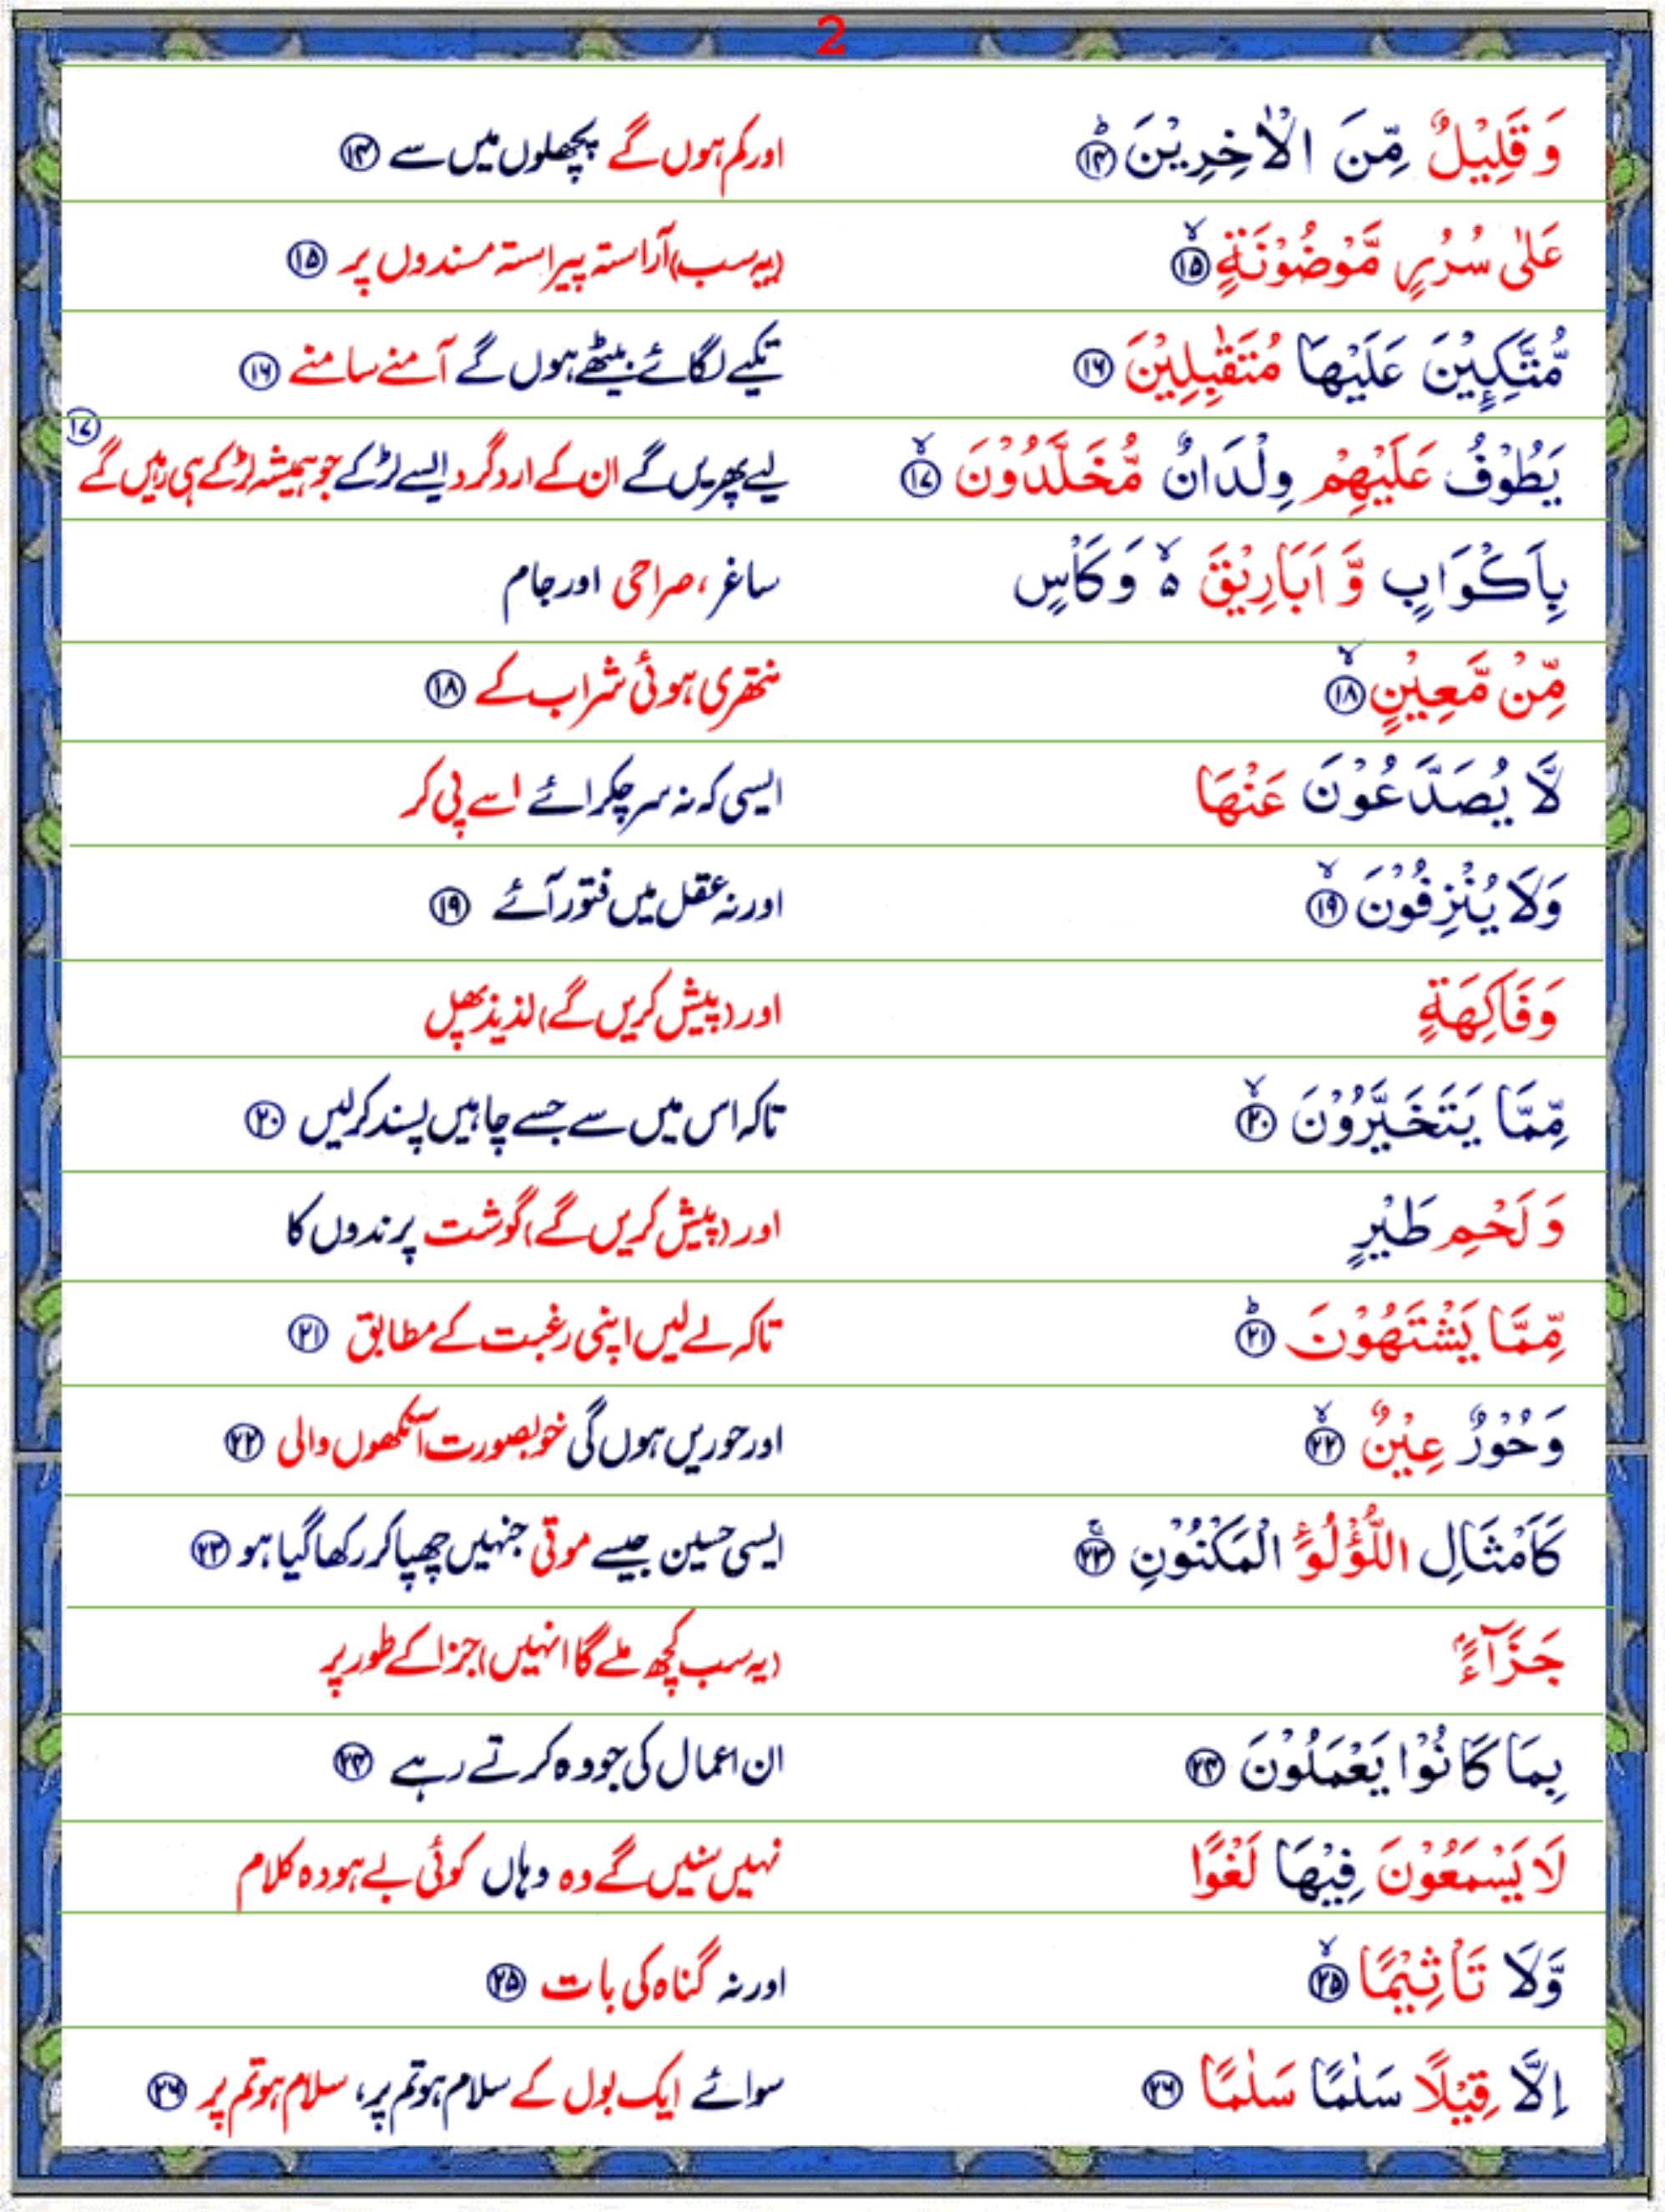 2
وَ قَلِيْلٌ مِّنَ الْاٰخِرِيْنَ ؕ‏﴿۱۴﴾ اور کم ہوں گے پچھلوں میں سے ﴿۱۴﴾
عَلٰى سُرُرٍ مَّوْضُوْنَةٍ ۙ‏﴿۱۵﴾ (یہ سب) آراستہ پیراستہ مسندوں پر ﴿۱۵﴾
مُّتَّكِـِٕيْنَ عَلَيْهَا مُتَقٰبِلِيْنَ ﴿۱۶﴾ تکیے لگائے بیٹھے ہوں گے آمنے سامنے ﴿۱۶﴾
يَطُوْفُ عَلَيْهِمْ وِلْدَانٌ مُّخَلَّدُوْنَ ۙ‏﴿۱۷﴾ لیے پھریں گے ان کے اردگرد ایسے لڑکے جو ہمیشہ لڑکے ہی رہیں گے ﴿۱۷﴾
بِاَكْوَابٍ وَّ اَبَارِيْقَ ۙ۬ وَ كَاْسٍ ساغر، صراحی اور جام
مِّنْ مَّعِيْنٍ ۙ‏﴿۱۸﴾ نتھری ہوئی شراب کے ﴿۱۸﴾
لَّا يُصَدَّعُوْنَ عَنْهَا ایسی کہ نہ سر چکرائے اسے پی کر
وَلَا يُنْزِفُوْنَ ۙ‏﴿۱۹﴾ اور نہ عقل میں فتور آئے ﴿۱۹﴾
وَفَاكِهَةٍ اور (پیش کریں گے) لذیذ پھل
مِّمَّا يَتَخَيَّرُوْنَ ۙ‏﴿۲۰﴾ تاکہ اس میں سے جسے چاہیں پسند کرلیں ﴿۲۰﴾
وَ لَحْمِ طَيْرٍ اور (پیش کریں گے) گوشت پرندوں کا
مِّمَّا يَشْتَهُوْنَ ؕ‏﴿۲۱﴾ تاکہ لے لیں اپنی رغبت کے مطابق ﴿۲۱﴾
وَحُوْرٌ عِيْنٌ ۙ‏﴿۲۲﴾ اور حوریں ہوں گی خوبصورت آنکھوں والی ﴿۲۲﴾
كَاَمْثَالِ اللُّؤْلُوٴِ الْمَكْنُوْنِ ۚ‏﴿۲۳﴾ ایسی حسین جیسے موتی جنہیں چھپا کر رکھا گیا ہو ﴿۲۳﴾
جَزَآءًۢ (یہ سب کچھ ملے گا انہیں) جزا کے طور پر
بِمَا كَانُوْا يَعْمَلُوْنَ ﴿۲۴﴾ ان اعمال کی جو وہ کرتے رہے ﴿۲۴﴾
لَا يَسْمَعُوْنَ فِيْهَا لَغْوًا نہیں سنیں گے وہ وہاں کوئی بے ہودہ کلام
وَّلَا تَاْثِيْمًا ۙ‏﴿۲۵﴾ اور نہ گناہ کی بات ﴿۲۵﴾
اِلَّا قِيْلًا سَلٰمًا سَلٰمًا ﴿۲۶﴾ سوائے ایک بول کے سلام ہو تم پر، سلام ہو تم پر ﴿۲۶﴾